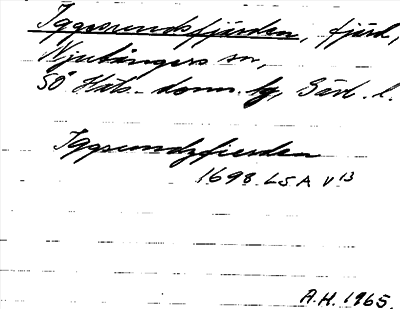 Iggesundsfjärden, fjärd,
Njutångers sn,
SÖ Häls. doms. tg, Gävl. l.
Iggsundzfierden
1698 LSA V 13
A.H. 1965.